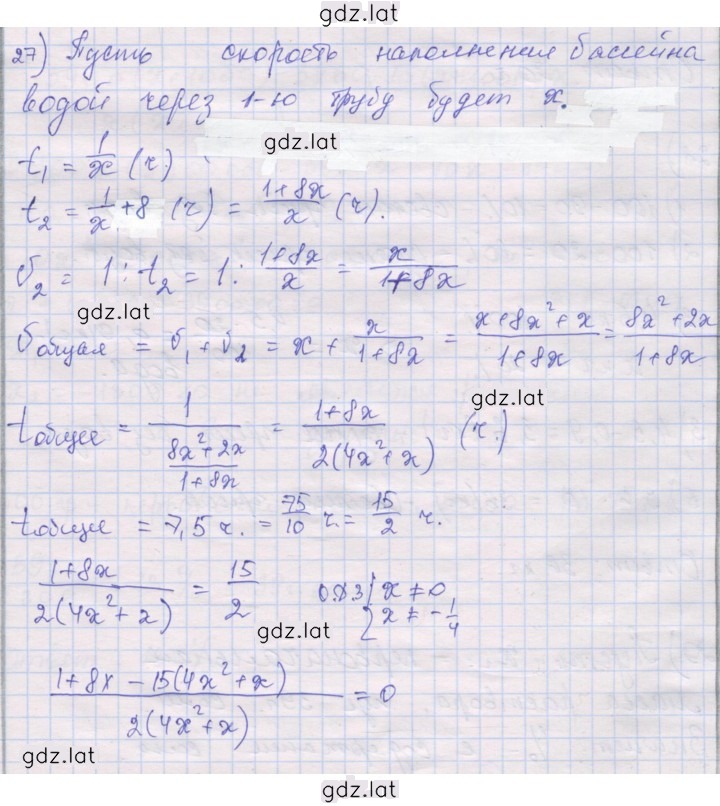 gdz.lat
27) Пусть скорость наполнения бассейна
водой через 1-ю трубу будет x.
gdz.lat
t₁ = 1/x (ч.)
t₂ = 1/x + 8 (ч) = (1+8x)/x (ч).
υ₂ = 1 : t₂ = 1 : (1+8x)/x = x/(1+8x)
gdz.lat
υобщая = υ₁ + υ₂ = x + x/(1+8x) = (x+8x²+x)/(1+8x) = (8x²+2x)/(1+8x)
gdz.lat
tобщее = 1/((8x²+2x)/(1+8x)) = (1+8x)/(2(4x²+x)) (ч.)
tобщее = 7,5 ч. = 75/10 ч. = 15/2 ч.
(1+8x)/(2(4x²+x)) = 15/2 ОДЗ { x ≠ 0, x ≠ -1/4
gdz.lat
(1+8x - 15(4x²+x))/(2(4x²+x)) = 0
gdz.lat
gdz.lat